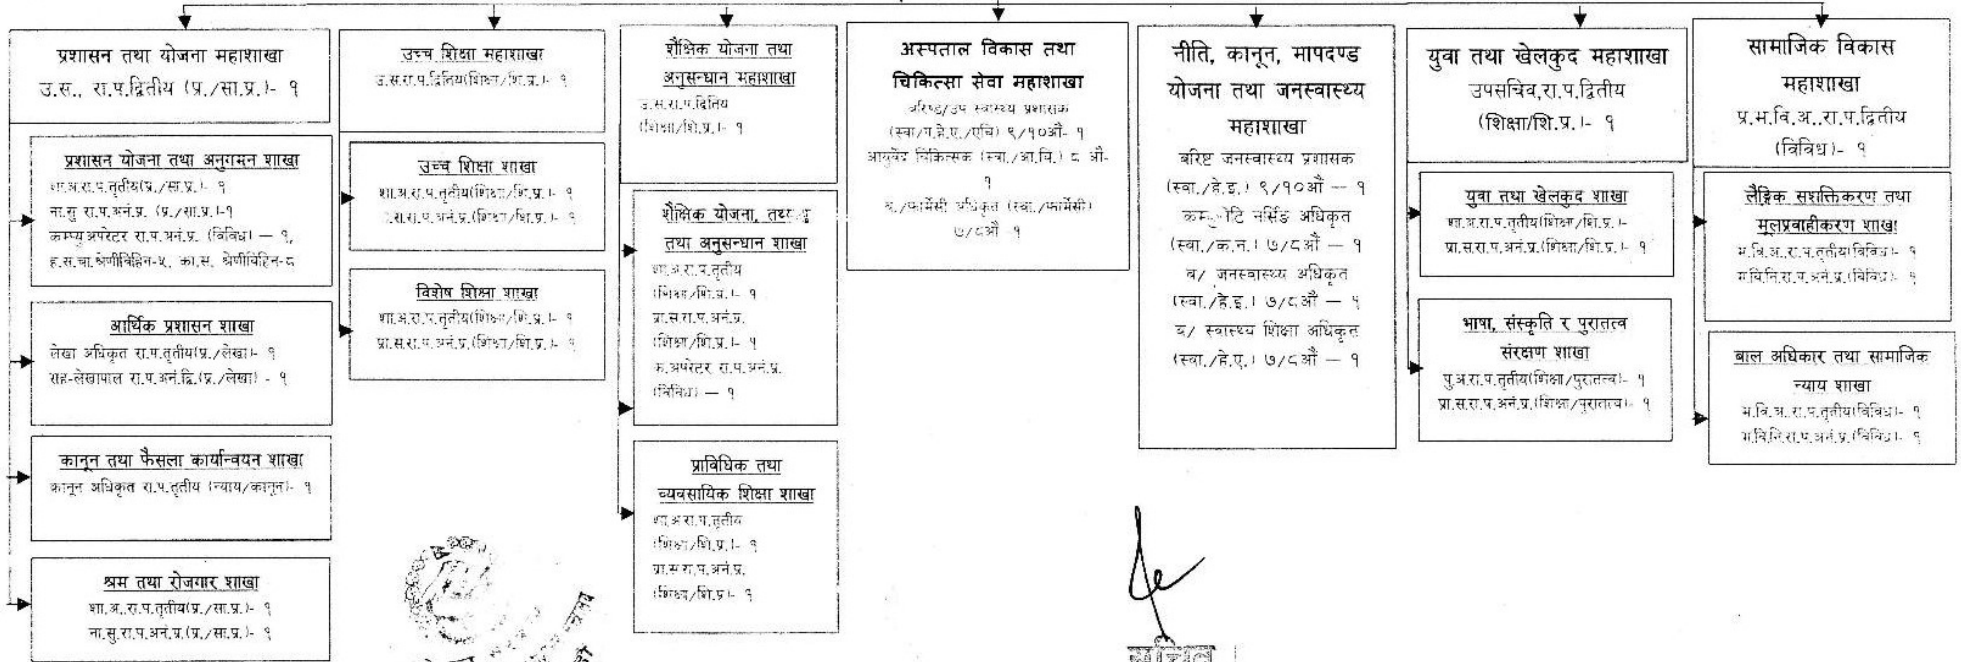 प्रशासन तथा योजना महाशाखा
उ.स., रा.प.द्वितीय (प्र./सा.प्र.)- १
प्रशासन योजना तथा अनुगमन शाखा
शा.अ.रा.प.तृतीय(प्र./सा.प्र.)- १
ना.सु रा.प.अनं.प्र. (प्र./सा.प्र.)-१
कम्प्यु अपरेटर रा.प.अनं.प्र. (विविध) — १,
ह.स.चा.श्रेणीविहिन-५, का.स. श्रेणीविहिन-८
आर्थिक प्रशासन शाखा
लेखा अधिकृत रा.प.तृतीय(प्र./लेखा)- १
सह-लेखापाल रा.प.अनं.द्वि.(प्र./लेखा) - १
कानून तथा फैसला कार्यान्वयन शाखा
कानून अधिकृत रा.प.तृतीय (न्याय/कानून)- १
श्रम तथा रोजगार शाखा
शा.अ.रा.प.तृतीय(प्र./सा.प्र.)- १
ना.सु.रा.प.अनं.प्र.(प्र./सा.प्र.)- १
उच्च शिक्षा महाशाखा
उ.स.रा.प.द्वितिय(शिक्षा/शि.प्र.)- १
उच्च शिक्षा शाखा
शा.अ.रा.प.तृतीय(शिक्षा/शि.प्र.)- १
.स.रा.प.अनं.प्र.(शिक्षा/शि.प्र.)- १
विशेष शिक्षा शाखा
शा.अ.रा.प.तृतीय(शिक्षा/शि.प्र.)- १
प्रा.स.रा.प.अनं.प्र.(शिक्षा/शि.प्र.)- १
शैक्षिक योजना तथा
अनुसन्धान महाशाखा
उ.स.रा.प.द्वितिय
(शिक्षा/शि.प्र.)- १
शैक्षिक योजना,
तथा अनुसन्धान शाखा
शा.अ.रा.प.तृतीय
(शिक्षा/शि.प्र.)- १
प्रा.स.रा.प.अनं.प्र.
(शिक्षा/शि.प्र.)- १
क.अपरेटर रा.प.अनं.प्र.
(विविध) — १
प्राविधिक तथा
व्यवसायिक शिक्षा शाखा
शा.अ.रा.प.तृतीय
(शिक्षा/शि.प्र.)- १
प्रा.स.रा.प.अनं.प्र.
(शिक्षा/शि.प्र)- १
अस्पताल विकास तथा
चिकित्सा सेवा महाशाखा
बरिष्ठ/उप स्वास्थ्य प्रशासक
९/१०औ- १
आयुर्वेद चिकित्सक (स्वा./आ.चि.) ८ औ-
१
ब./फार्मेसी अधिकृत (स्वा./फार्मेसी)
७/८औ -१
नीति, कानून, मापदण्ड
योजना तथा जनस्वास्थ्य
महाशाखा
बरिष्ट जनस्वास्थ्य प्रशासक
(स्वा./हे.इ.) ९/१०औ — १
नर्सिङ अधिकृत
(स्वा./क.न.) ७/८औ — १
ब/ जनस्वास्थ्य अधिकृत
(स्वा./हे.इ.) ७/८औ — १
ब/ स्वास्थ्य शिक्षा अधिकृत
(स्वा./हे.ए.) ७/८औ — १
युवा तथा खेलकुद महाशाखा
उपसचिव,रा.प.द्वितीय
(शिक्षा/शि.प्र.)- १
युवा तथा खेलकुद शाखा
शा.अ.रा.प.तृतीय(शिक्षा/शि.प्र.)-
प्रा.स.रा.प.अनं.प्र.(शिक्षा/शि.प्र.)- १
भाषा, संस्कृति र पुरातत्व
संरक्षण शाखा
पु.अ.रा.प.तृतीय(शिक्षा/पुरातत्व)- १
प्रा.स.रा.प.अनं.प्र.(शिक्षा/पुरातत्व)- १
सामाजिक विकास
महाशाखा
प्र.म.वि.अ..रा.प.द्वितीय
(विविध)- १
लैङ्गिक सशक्तिकरण तथा
मूलप्रवाहीकरण शाखा
म.वि.अ..रा.प.तृतीय(विविध)- १
म.वि.नि.रा.प.अनं.प्र.(विविध)- १
बाल अधिकार तथा सामाजिक
न्याय शाखा
म.वि.अ..रा.प.तृतीय(विविध)- १
म.वि.नि.रा.प.अनं.प्र.(विविध)- १
सचिव